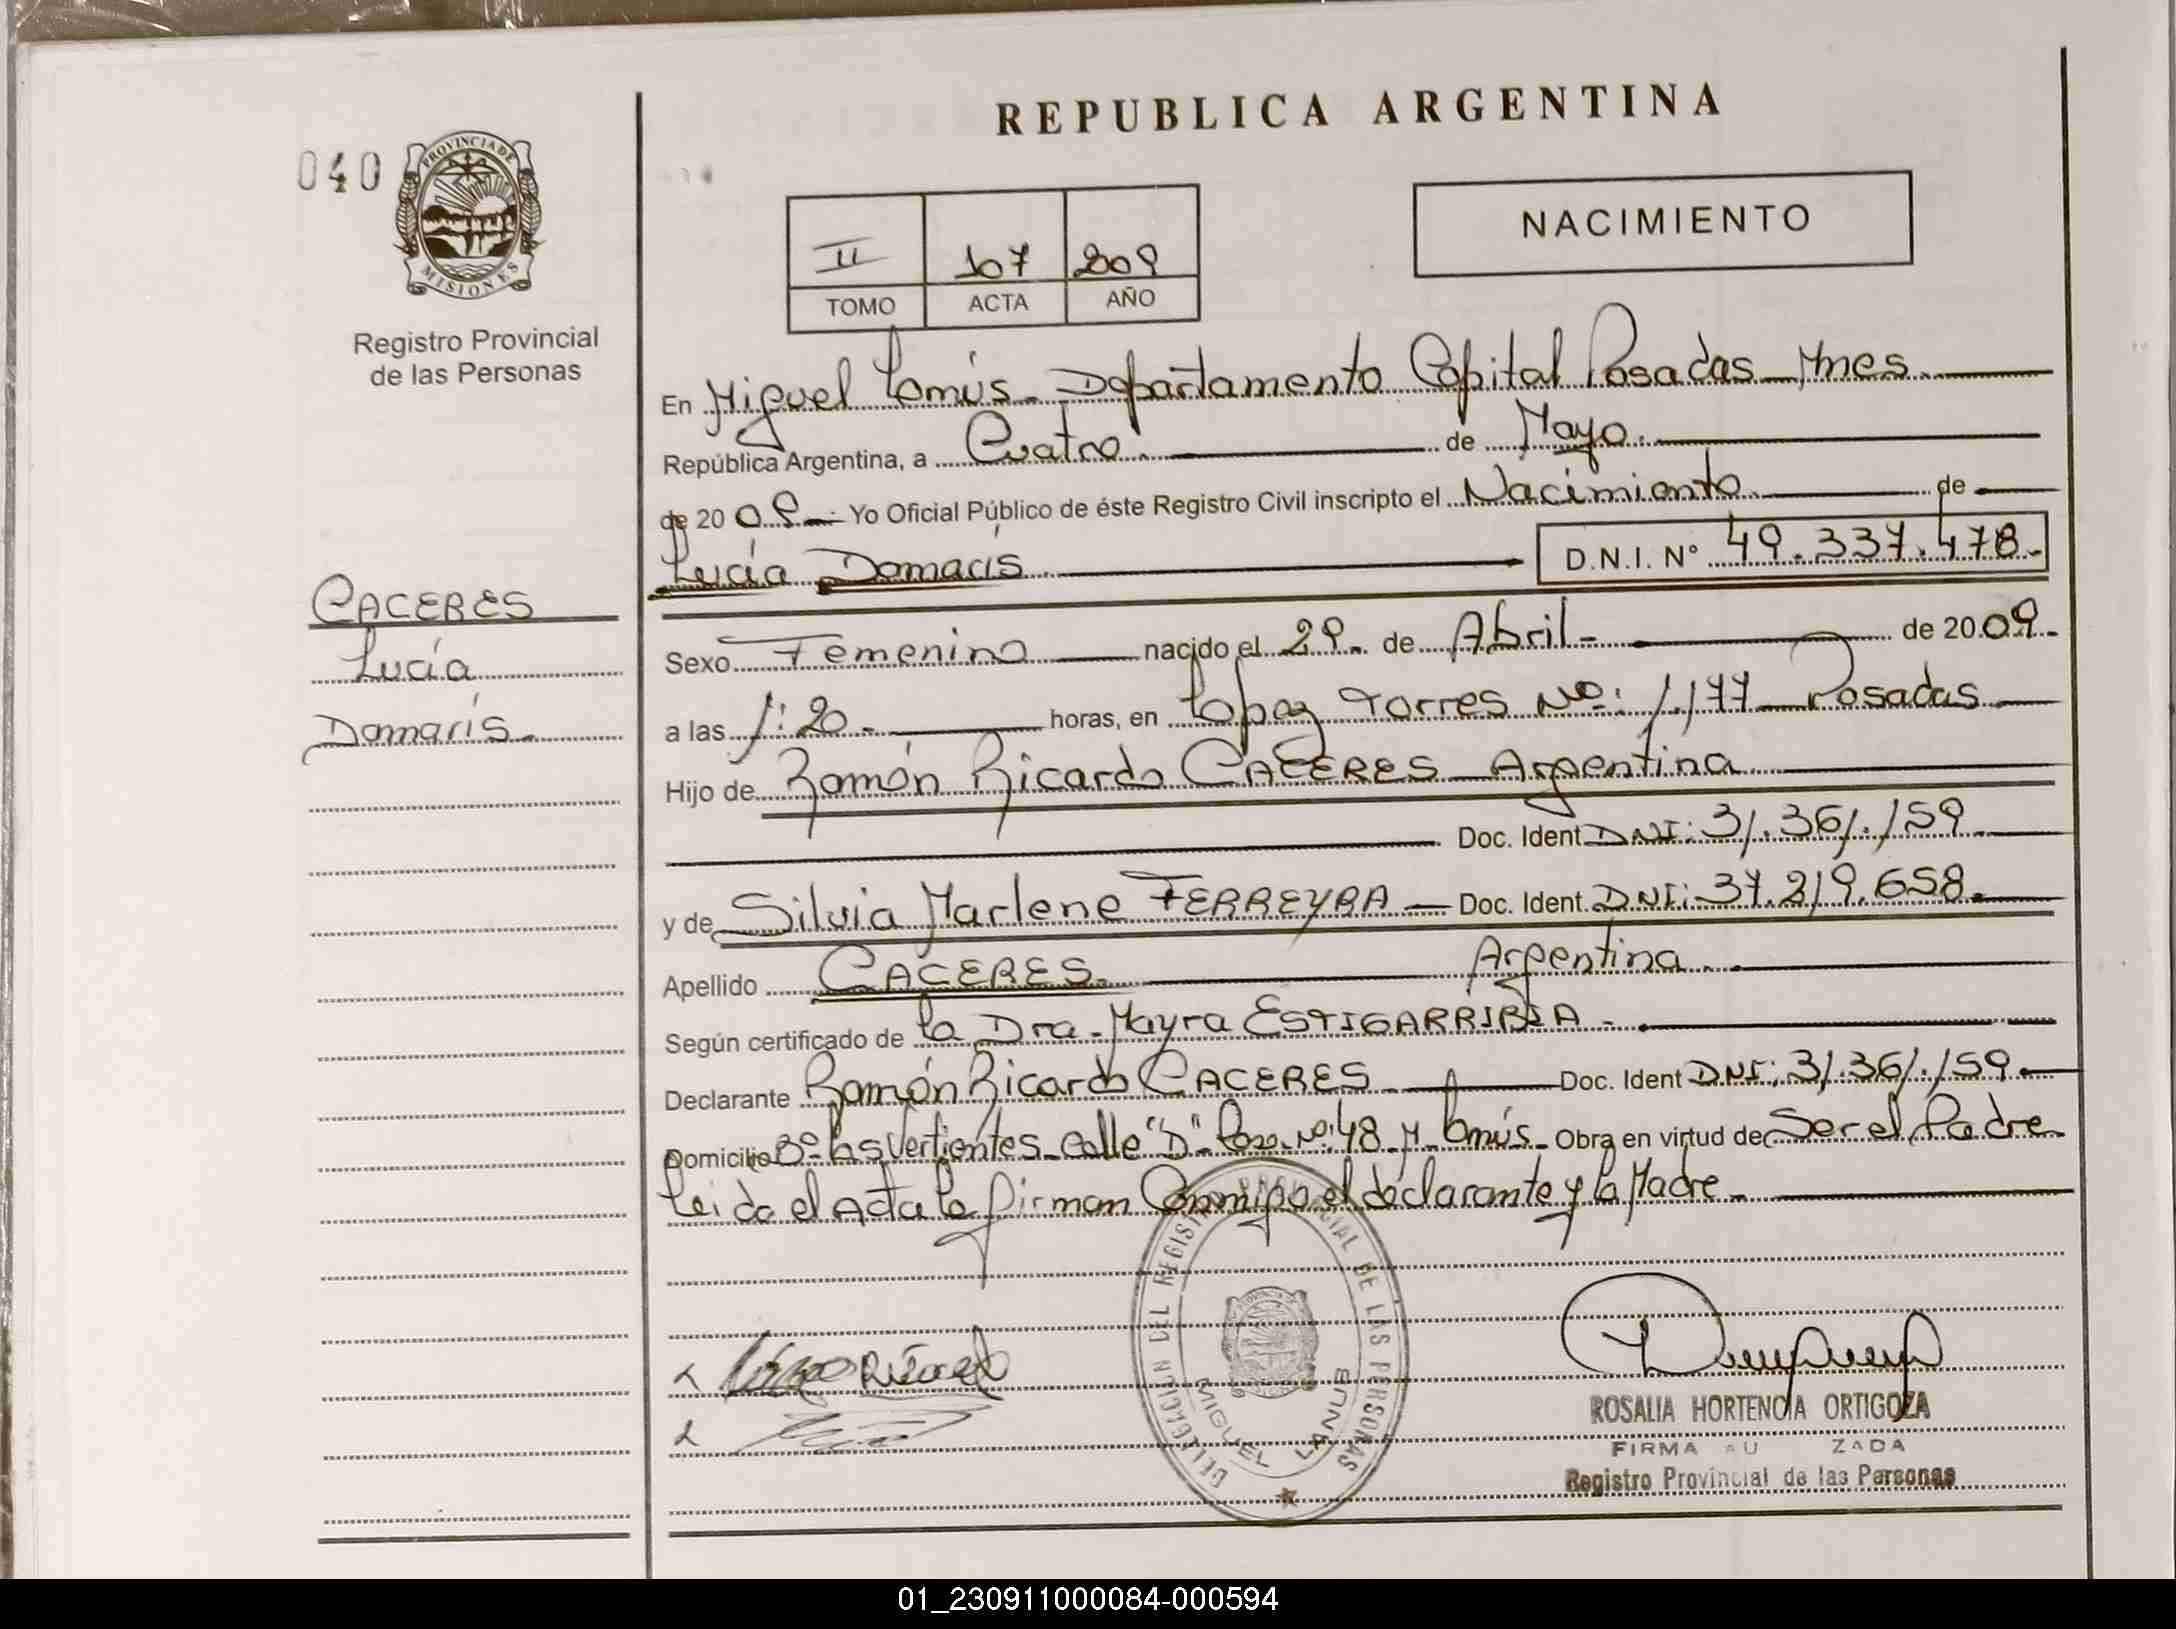 REPUBLICA ARGENTINA
040
PROVINCIA DE
MISIONES
Registro Provincial
de las Personas
NACIMIENTO
II 107 2009
TOMO ACTA AÑO
En Miguel Lanús - Departamento Capital Posadas Mnes.
República Argentina, a Cuatro de Mayo.
de 2009 Yo Oficial Público de éste Registro Civil inscripto el Nacimiento de
Lucía Damaris D.N.I. Nº 49.337.478.
CACERES
Lucía
Damaris.
Sexo Femenino nacido el 29. de Abril - de 2009.
a las 1:20 - horas, en López Torres Nº: 1.177 Posadas
Hijo de Ramón Ricardo CACERES Argentina
Doc. Ident DNI: 31.361.159
y de Silvia Marlene FERREYRA Doc. Ident. DNI: 37.219.658.
Apellido CACERES. Argentina.
Según certificado de la Dra. Mayra ESTIGARRIBIA -
Declarante Ramón Ricardo CACERES Doc. Ident DNI: 31.361.159
Domicilio Bº las Vertientes calle "D" Nº: 48 M. Lanús - Obra en virtud de Ser el Padre
Leida el Acta la firman Conmigo el declarante y la Madre -
DELEGACION DEL REGISTRO PROVINCIAL DE LAS PERSONAS
MIGUEL LANUS
ROSALIA HORTENCIA ORTIGOZA
FIRMA AU ZADA
Registro Provincial de las Personas
01_230911000084-000594